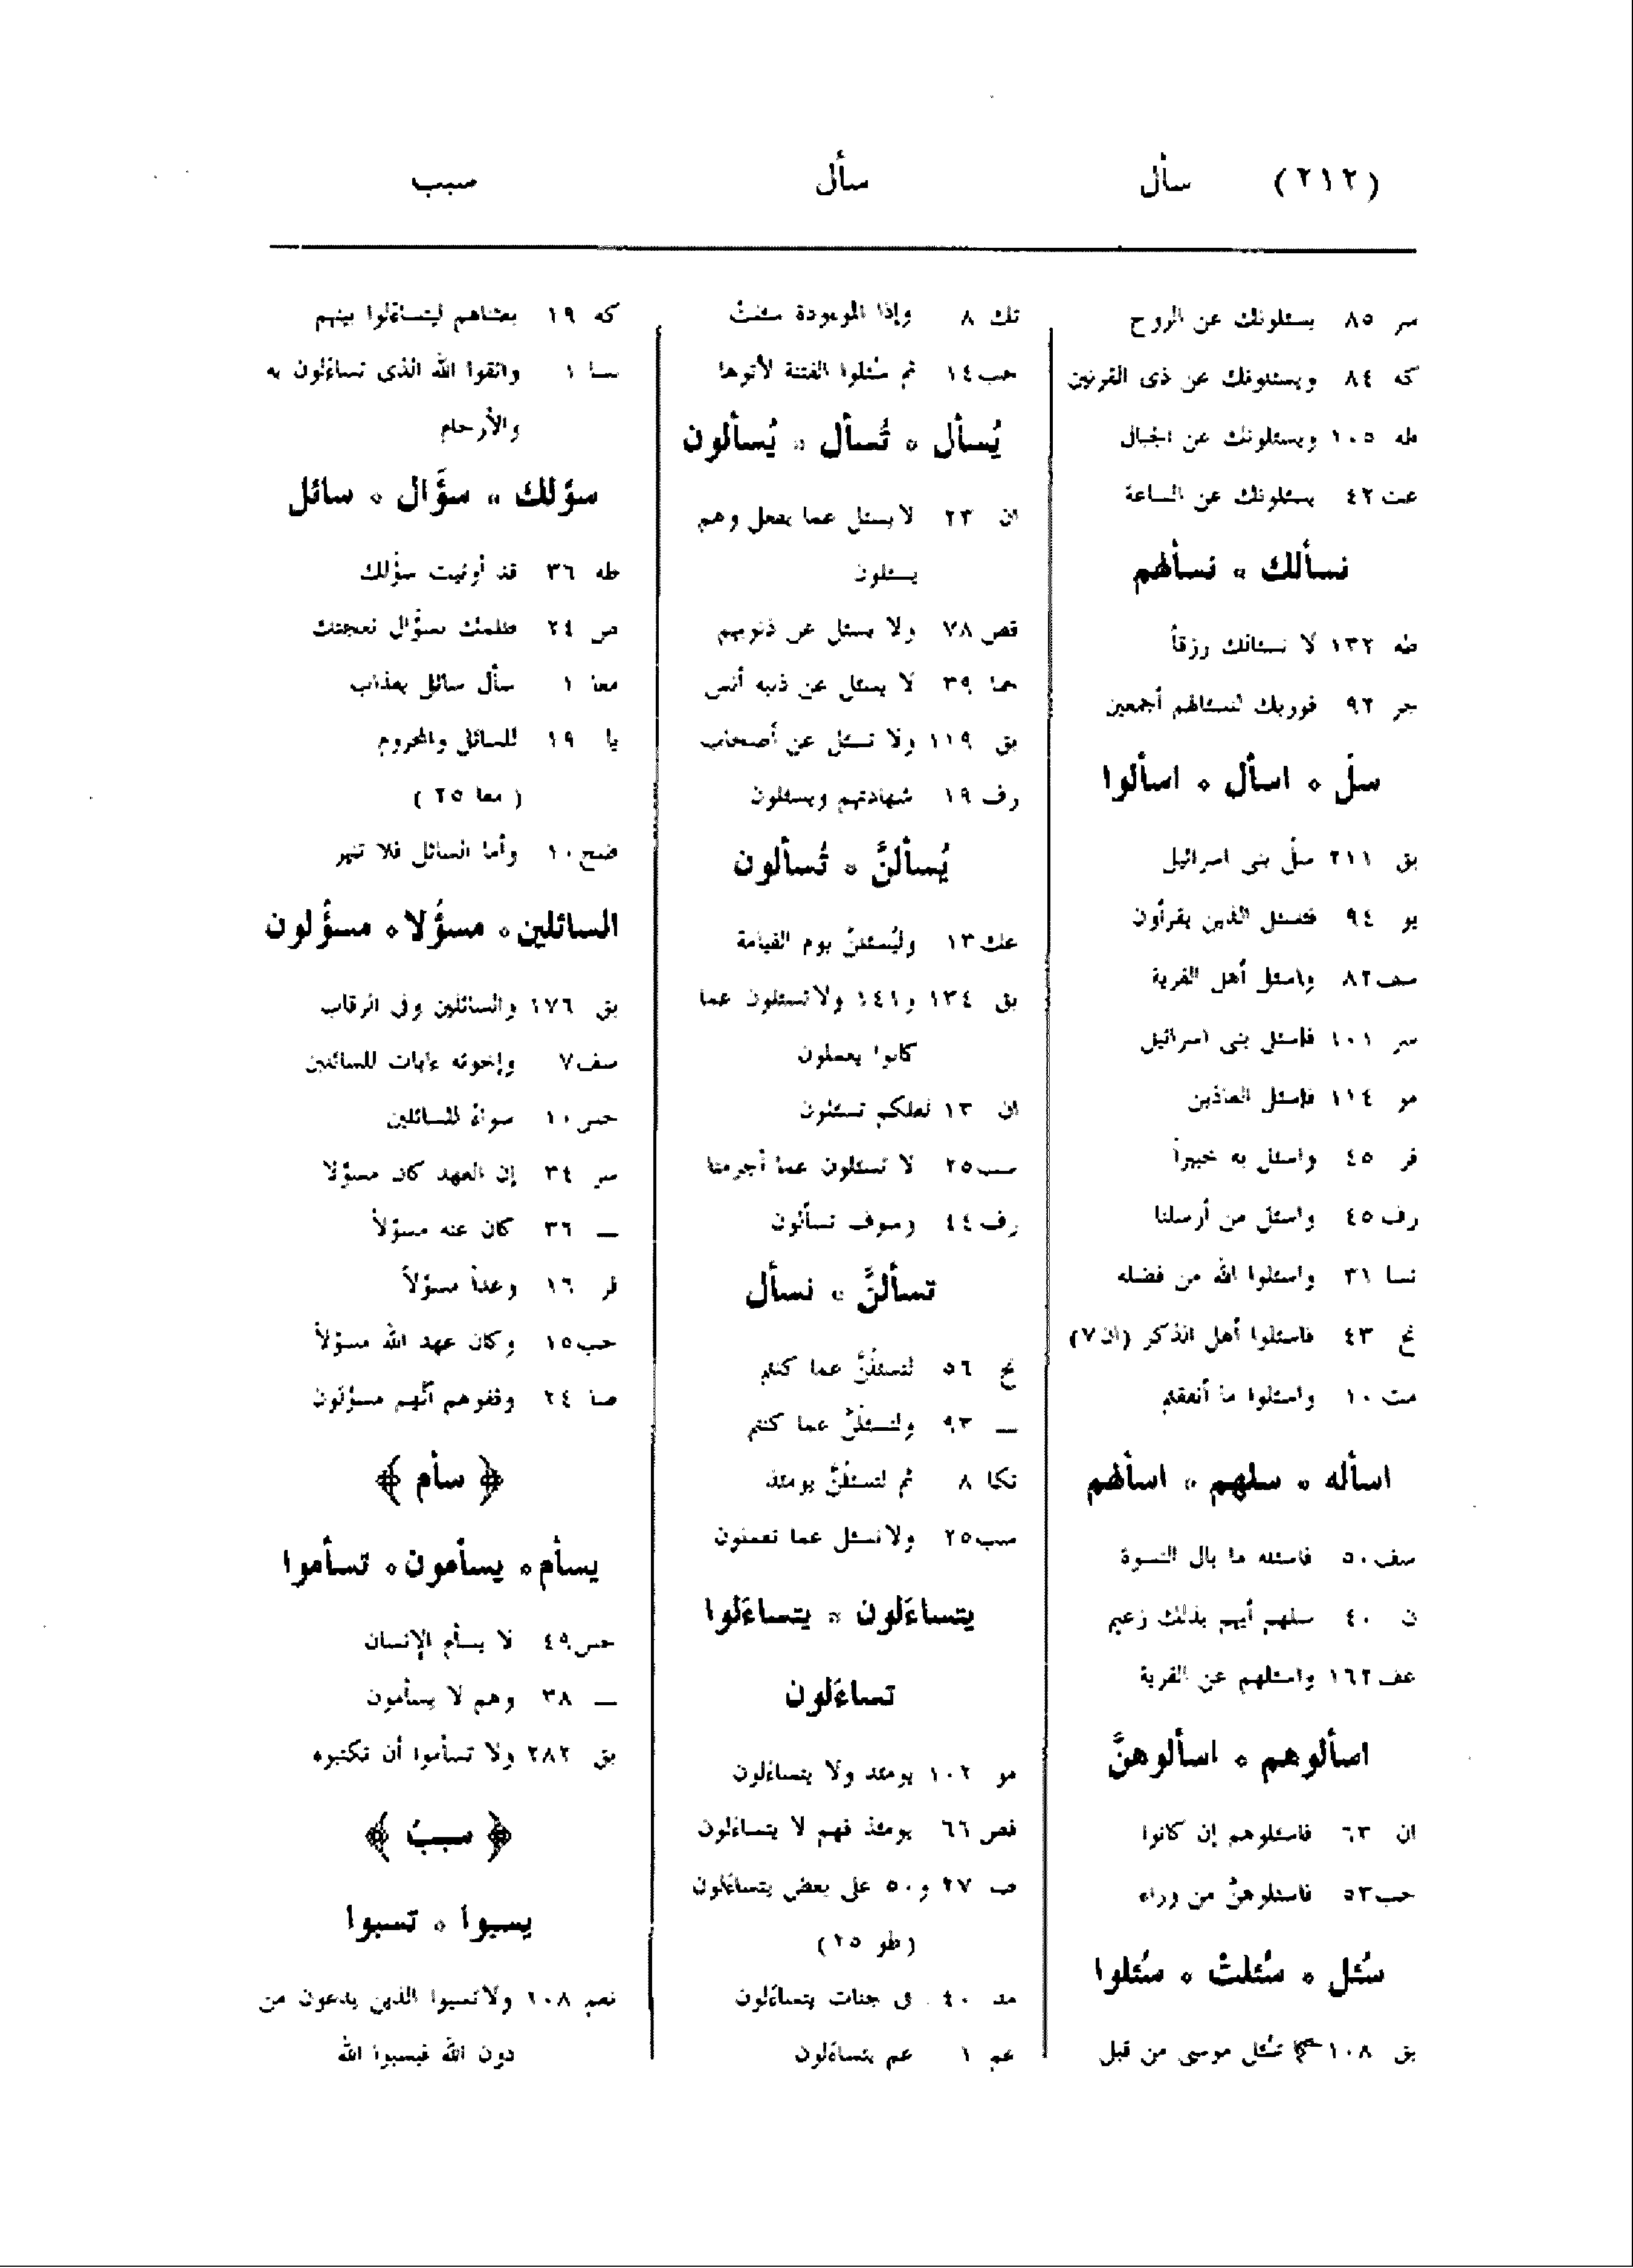 (٢١٢) سأل سأل سبب
سر ٨٥ يسئلونك عن الروح
كه ٨٤ ويسئلونك عن ذى القرنين
طه ١٠٥ ويسئلونك عن الجبال
عت ٤٢ يسئلونك عن الساعة
نسألك * نسألهم
طه ١٣٢ لا نسئلك رزقاً
جر ٩٢ فوربك لنسئلهم أجمعين
سلْ * اسأل * اسألوا
بق ٢١١ سلْ بنى اسرائيل
يو ٩٤ فسئل الذين يقرأون
سف ٨٢ واسئل أهل القرية
سر ١٠١ فاسئل بنى اسرائيل
مو ١١٤ فاسئل العادّين
فر ٤٥ واسئل به خبيراً
رف ٤٥ واسئل من أرسلنا
نسا ٣١ واسئلوا الله من فضله
نح ٤٣ فاسئلوا أهل الذكر (ان ٧)
مت ١٠ واسئلوا ما أنفقتم
اسأله * سلهم * اسألهم
سف ٥٠ فاسئله ما بال النسوة
ن ٤٠ سلهم أيهم بذلك زعيم
عف ١٦٢ واسئلهم عن القرية
اسألوهم * اسألوهنَّ
ان ٦٣ فاسئلوهم إن كانوا
حب ٥٣ فاسئلوهنَّ من وراء
سُئل * سُئلتْ * سُئلوا
بق ١٠٨ كما سُئل موسى من قبل
تك ٨ وإذا الموءودة سئلتْ
حب ١٤ ثم سُئلوا الفتنة لأتوها
يُسأل * تُسأل * يُسألون
ان ٢٣ لا يسئل عما يفعل وهم
يسئلون
قص ٧٨ ولا يسئل عن ذنوبهم
حما ٣٩ لا يسئل عن ذنبه أنس
بق ١١٩ ولا تسئل عن أصحاب
رف ١٩ شهادتهم ويسئلون
يُسألنَّ * تُسألون
عك ١٣ وليُسئلنَّ يوم القيامة
بق ١٣٤ و١٤١ ولا تسئلون عما
كانوا يعملون
ان ١٣ لعلكم تسئلون
سب ٢٥ لا تسئلون عما أجرمنا
رف ٤٤ وسوف تسألون
تسألنَّ * نسأل
نح ٥٦ لتسئلُنَّ عما كنتم
— ٩٣ ولتسئلُنَّ عما كنتم
تكا ٨ ثم لتسئلُنَّ يومئذ
سب ٢٥ ولا نسئل عما تعملون
يتساءَلون * يتساءَلوا
تساءَلون
مو ١٠٢ يومئذ ولا يتساءَلون
قص ٦٦ يومئذ فهم لا يتساءَلون
صا ٢٧ و٥٠ على بعض يتساءَلون
(طو ٢٥)
مد ٤٠ فى جنات يتساءَلون
عم ١ عم يتساءَلون
كه ١٩ بعثناهم ليتساءَلوا بينهم
نسا ١ واتقوا الله الذى تساءَلون به
والأرحام
سؤلك * سؤَال * سائل
طه ٣٦ قد أوتيت سؤْلك
ص ٢٤ ظلمك بسؤَال نعجتك
معا ١ سأل سائل بعذاب
يا ١٩ للسائل والمحروم
(معا ٢٥)
ضح ١٠ وأما السائل فلا تنهر
السائلين * مسؤُلا * مسؤُلون
بق ١٧٦ والسائلين وفى الرقاب
سف ٧ وإخوته ءايات للسائلين
حس ١٠ سواءً للسائلين
سر ٣٤ إن العهد كان مسؤلا
— ٣٦ كان عنه مسؤلاً
فر ١٦ وعداً مسؤلاً
حب ١٥ وكان عهد الله مسؤلاً
صا ٢٤ وقفوهم انَّهم مسؤلون
﴿ سأم ﴾
يسأم * يسأمون * تسأموا
حس ٤٩ لا يسأم الإنسان
— ٣٨ وهم لا يسأمون
بق ٢٨٢ ولا تسأموا أن تكتبوه
﴿ سبب ﴾
يسبوا * تسبوا
نعم ١٠٨ ولا تسبوا الذين يدعون من
دون الله فيسبوا الله